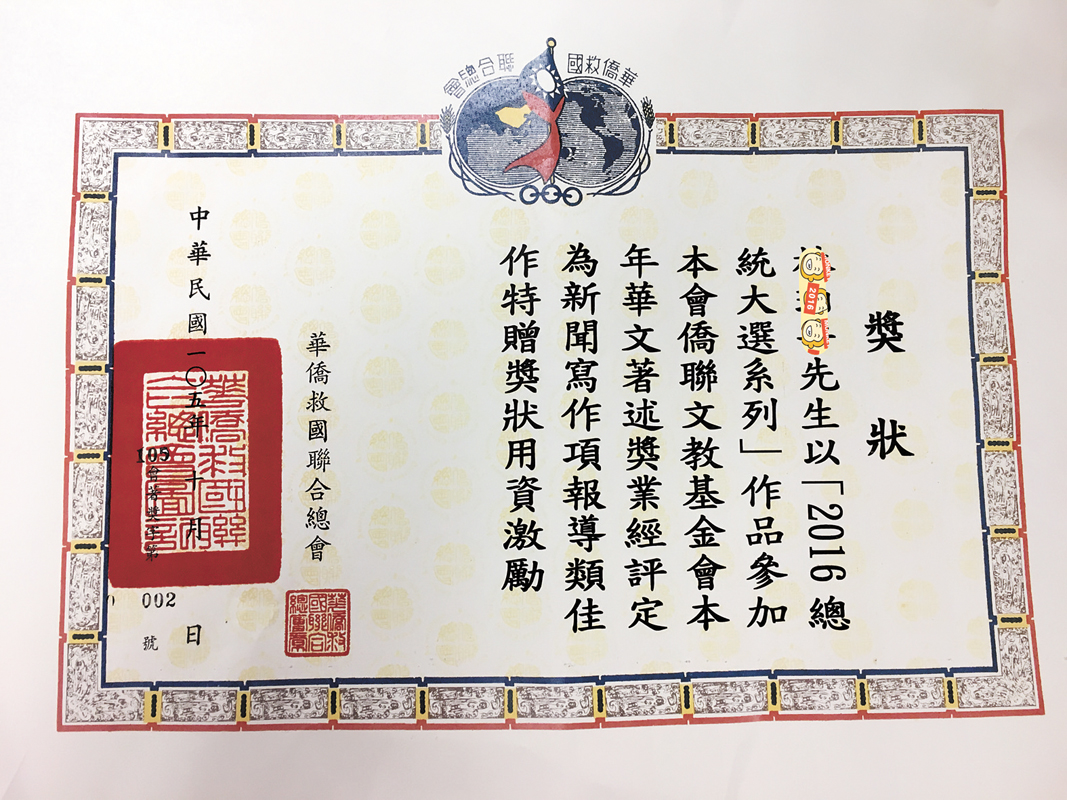 華僑救國聯合總會
獎狀
先生以「2016總
統大選系列」作品參加
本會僑聯文教基金會本
年華文著述獎業經評定
為新聞寫作項報導類佳
作特贈獎狀用資激勵
華僑救國聯合總會
中華民國一〇五年十月 日
105
002
號
2016